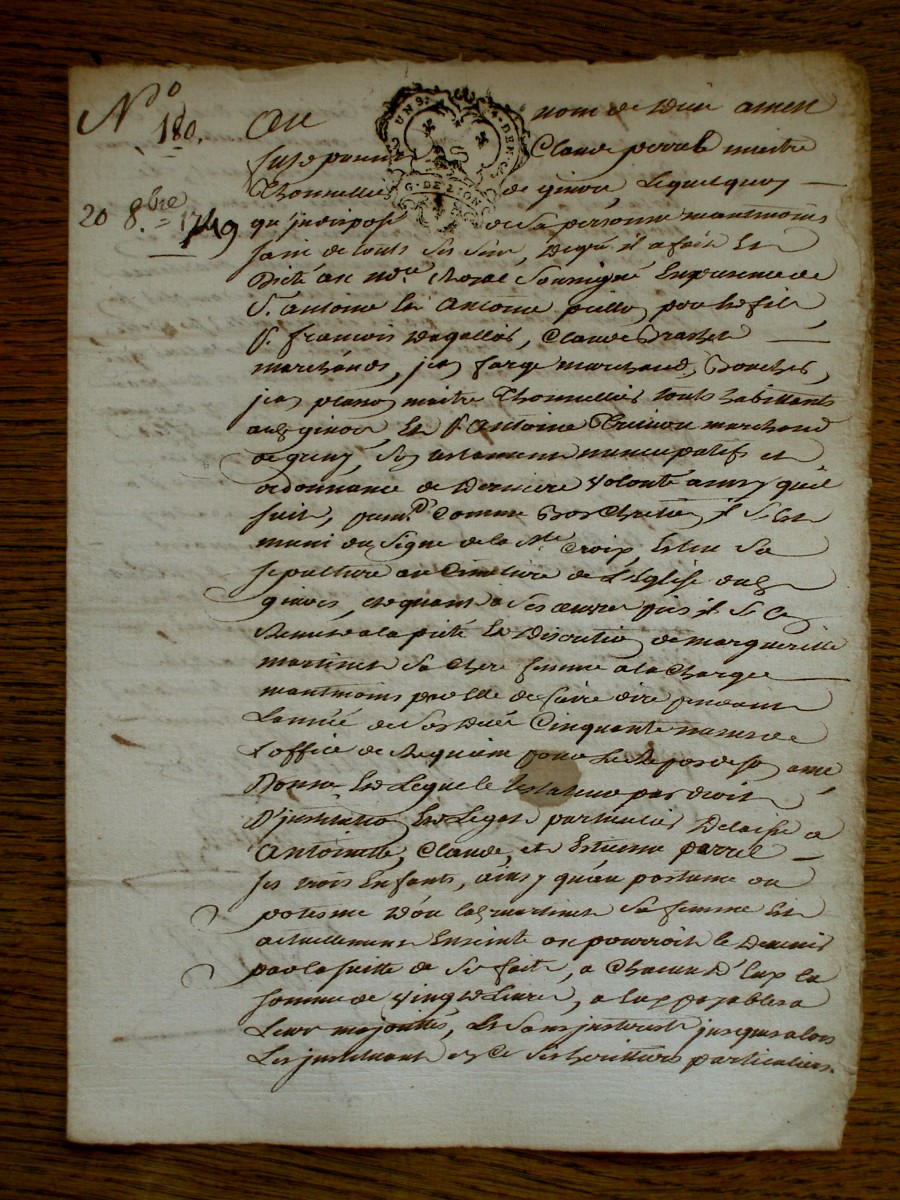 N° 180.
20 8bre 1749
UN S. 4. DEN.
G. DE LION
Au nom de Dieu amen
fut present Claude perrel maitre
Thonnellier de givors, Lequel quoy
qu'jndisposé de sa personne neantmoins
sain de touts ses sens, de gré il a fait et
Dicté au nore Royal soussigné En presence de
Sr antoine et antoine pere et fils
Sr francois Claude
marchands, jean farge marchand Boucher,
jean maitre Thonnellier touts habittants
audt givors, Et Sr Antoine marchand
de son testament nuncupatif et
ordonnance de Derniere volonté ainsy quil
suit, premt Comme bon Chretien il s'Est
muni du signe de la Ste Croix, Eslieu sa
sepulture au Cimetiere de L'Eglise dudt
givors, et quant a ses œuvres pies il s'en
Remet a la pieté Et Discretion de marguerite
martinet sa Chere femme a la Charge
neantmoins par elle de faire dire pendant
Lannée de son deces Cinquante messes de
L'office de Requiem pour Le Repos de son ame
Donne Et Legue le testateur par droit
D'jnstitution Et Legat particulier Delaissé a
Antoinette, Claude, et Estienne perrel
ses trois Enfants, ainsy qu'au postume ou
potesme d'ou ladt martinet sa femme Est
actuellement Enceinte ou pourroit le Devenir
par la suitte de ses faits, a Chacun D'Eux la
somme de vingt Livres, a Eux payables a
Leur majorité, Et sans jnterest jusques alors
Les jnstituant En Ce ses heritiers particuliers.